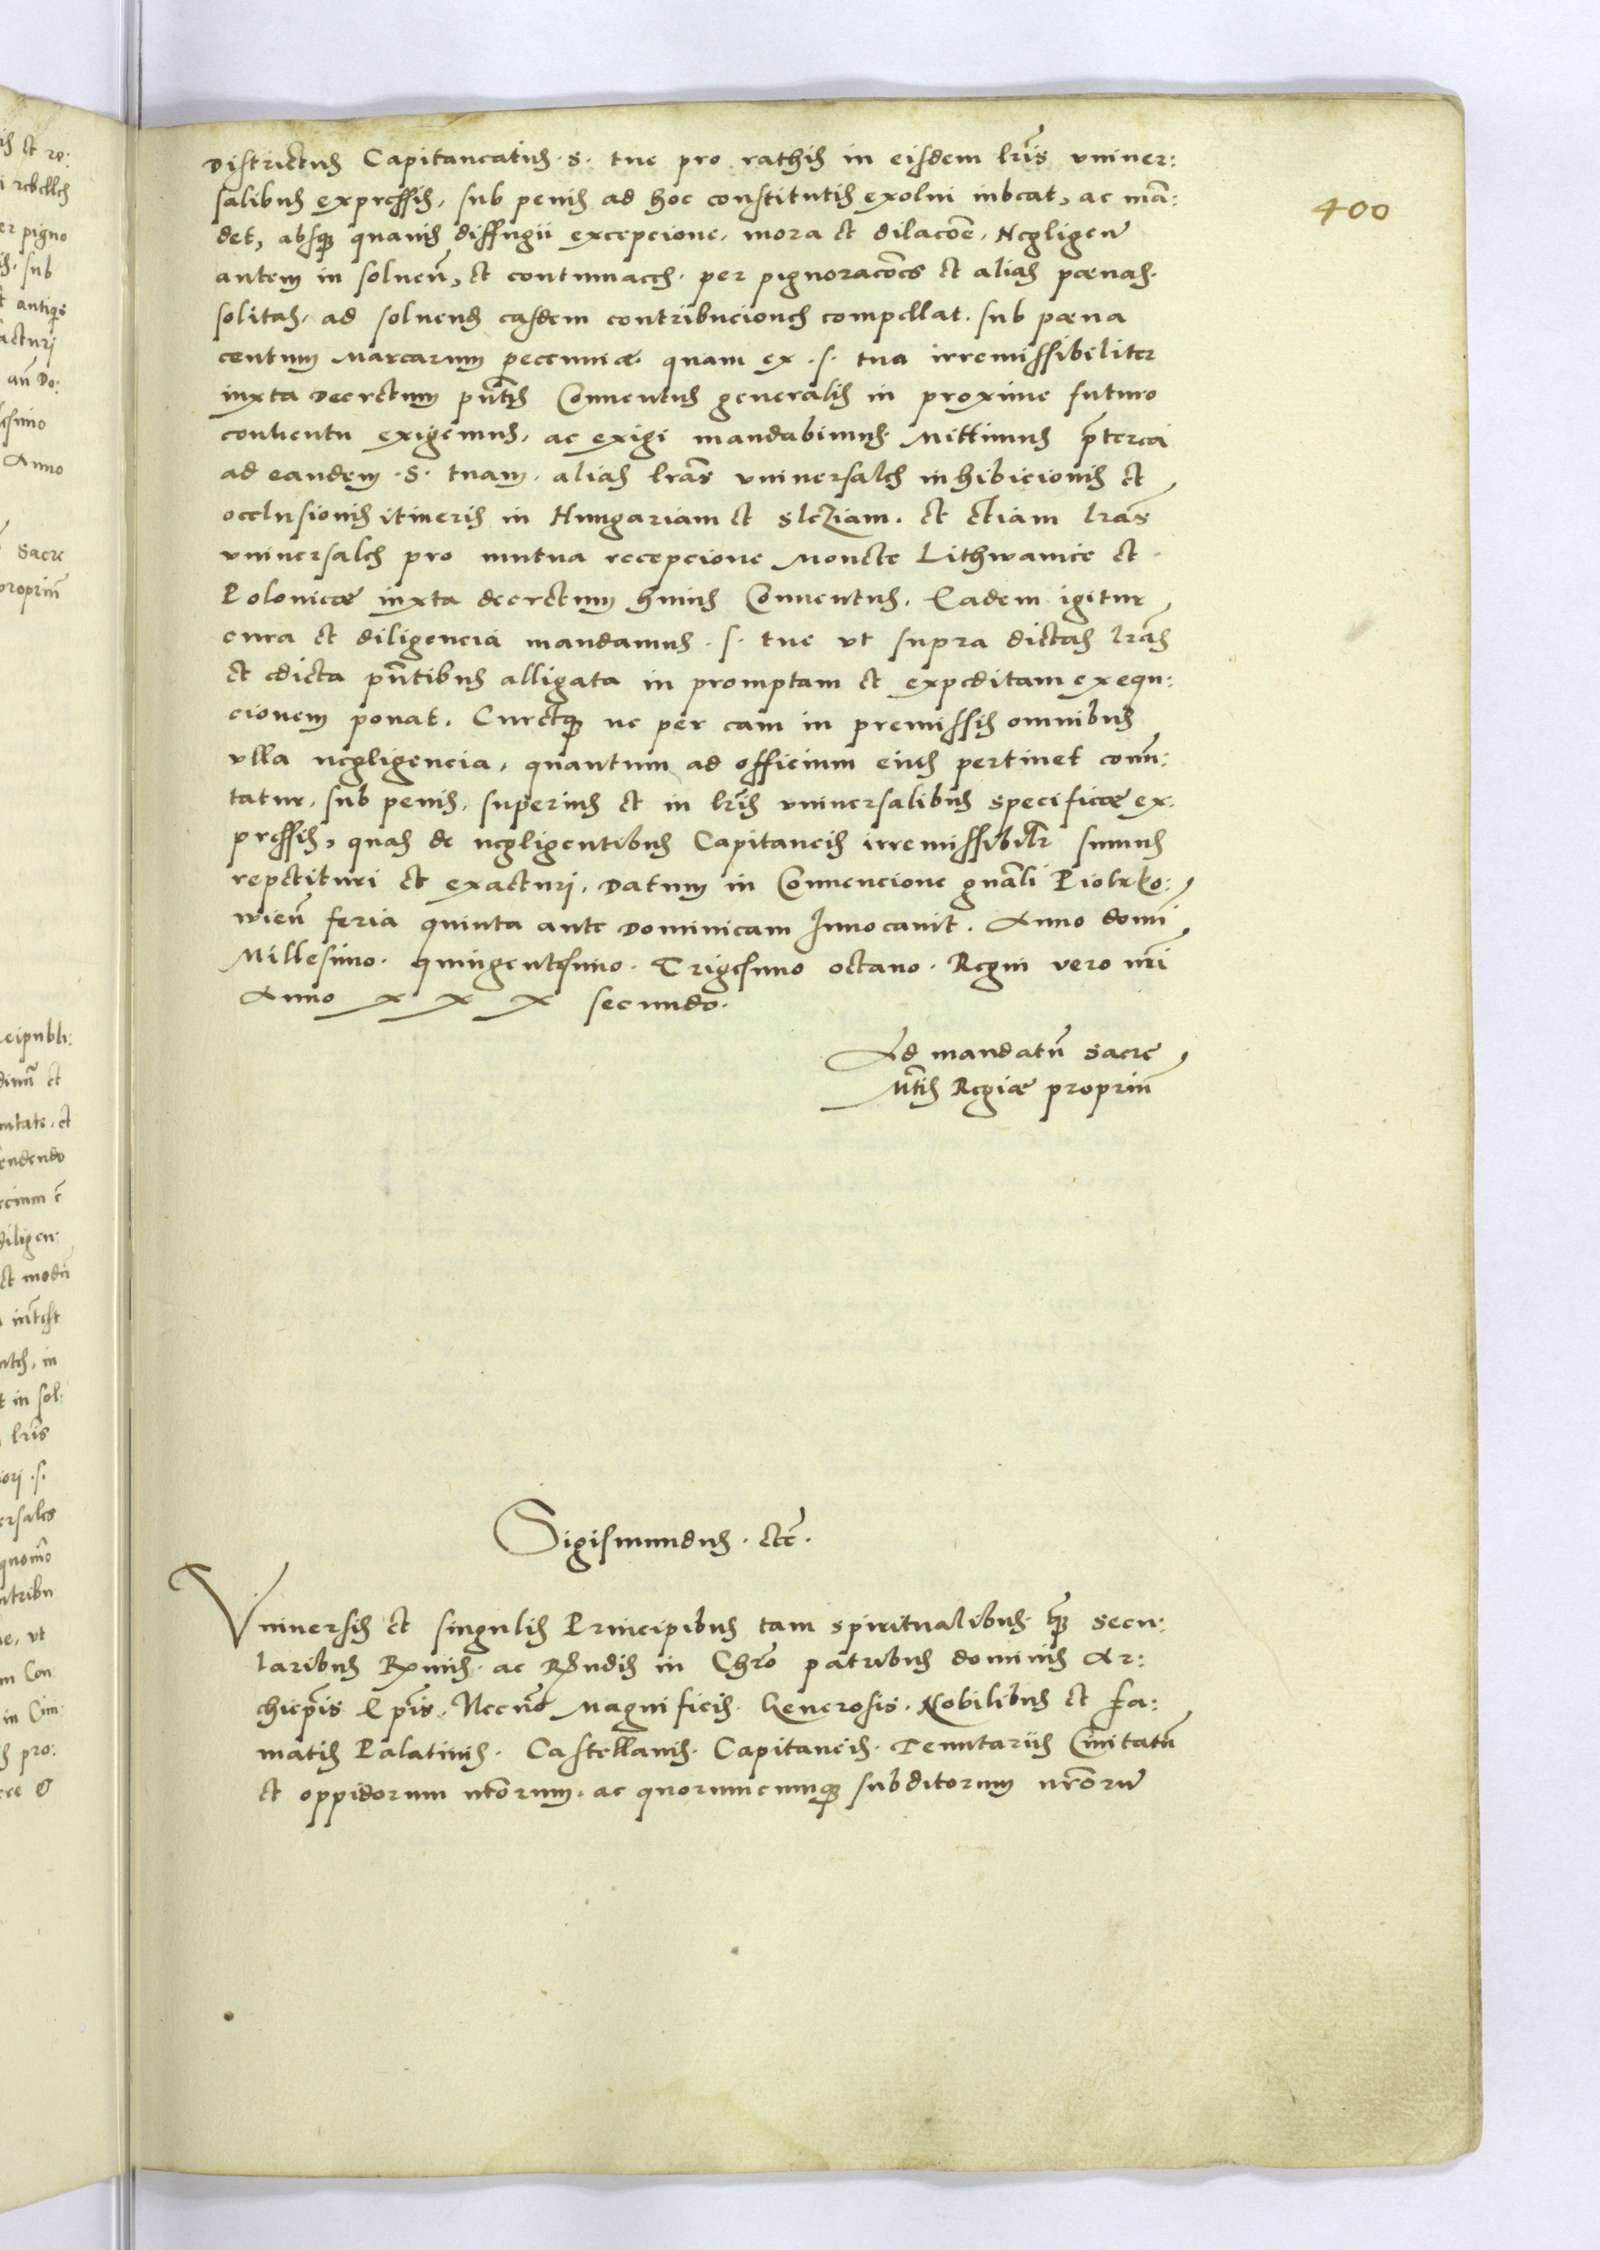 400
Districtus Capitaneatus · S · tue pro rathis in eisdem lr̃is vniuer:
salibus expressis, sub penis ad hoc constitutis exolui iubeat, ac mã:
det, absq; quauis diffugii excepcione, mora et dilacõe, Negligen̄
autem in soluen̄, et contumaces · per pignoracões et alias pœnas ·
solitas, ad soluend easdem contribuciones compellat · sub pœna
centum Marcarum peccuniæ · quam ex · S · tua irremissibiliter
iuxta Decretum pñtis Conuentus generalis in proxime futuro
conuentu exigemus, ac exigi mandabimus · Mittimus p̃terea
ad eandem · S · tuam · alias lr̃as vniuersales inhibicionis et
occlusionis itineris in Hungariam et Sleziam · et etiam lr̃as
vniuersales pro mutua recepcione Monete Lithwanice et
Polonicæ iuxta decretum huius Conuentus, Eadem igitur
cura et diligencia mandamus · S · tue vt supra dictas lr̃as
et edicta pñtibus alligata in promptam et expeditam exequ:
cionem ponat, Curetq; ne per eam in premissis omnibus
vlla negligencia, quantum ad officium eius pertinet comit̃:
tatur, sub penis, superius et in lr̃is vniuersalibus specificæ ex:
pressis, quas de negligentibus Capitaneis irremissibilr̃ sumus
repetituri et exacturi, Datum in Conuencione gñali Piotrko:
wien̄ feria quinta ante Dominicam Inuocauit · Anno domĩ
Millesimo · quingentesimo · Trigesimo octauo · Regni vero nr̃i
Anno x x x secundo ·
Ad mandatũ sacre
M̃tis Regiæ propriũ
Sigismundus · etc̃ ·
Vniuersis et singulis Principibus tam spiritualibus · q̃ secu:
laribus Rx̃mis · ac Rx̃ndis in Chr̃o patribus dominis Ar:
chiep̃is Ep̃is, Necnõ Magnificis · Generosis · Nobilibus et fa:
matis Palatinis · Castellanis · Capitaneis · Tenutariis Ciuitatũ
et oppidorum nr̃orum · ac quorumcumq; subditorum nr̃orũ